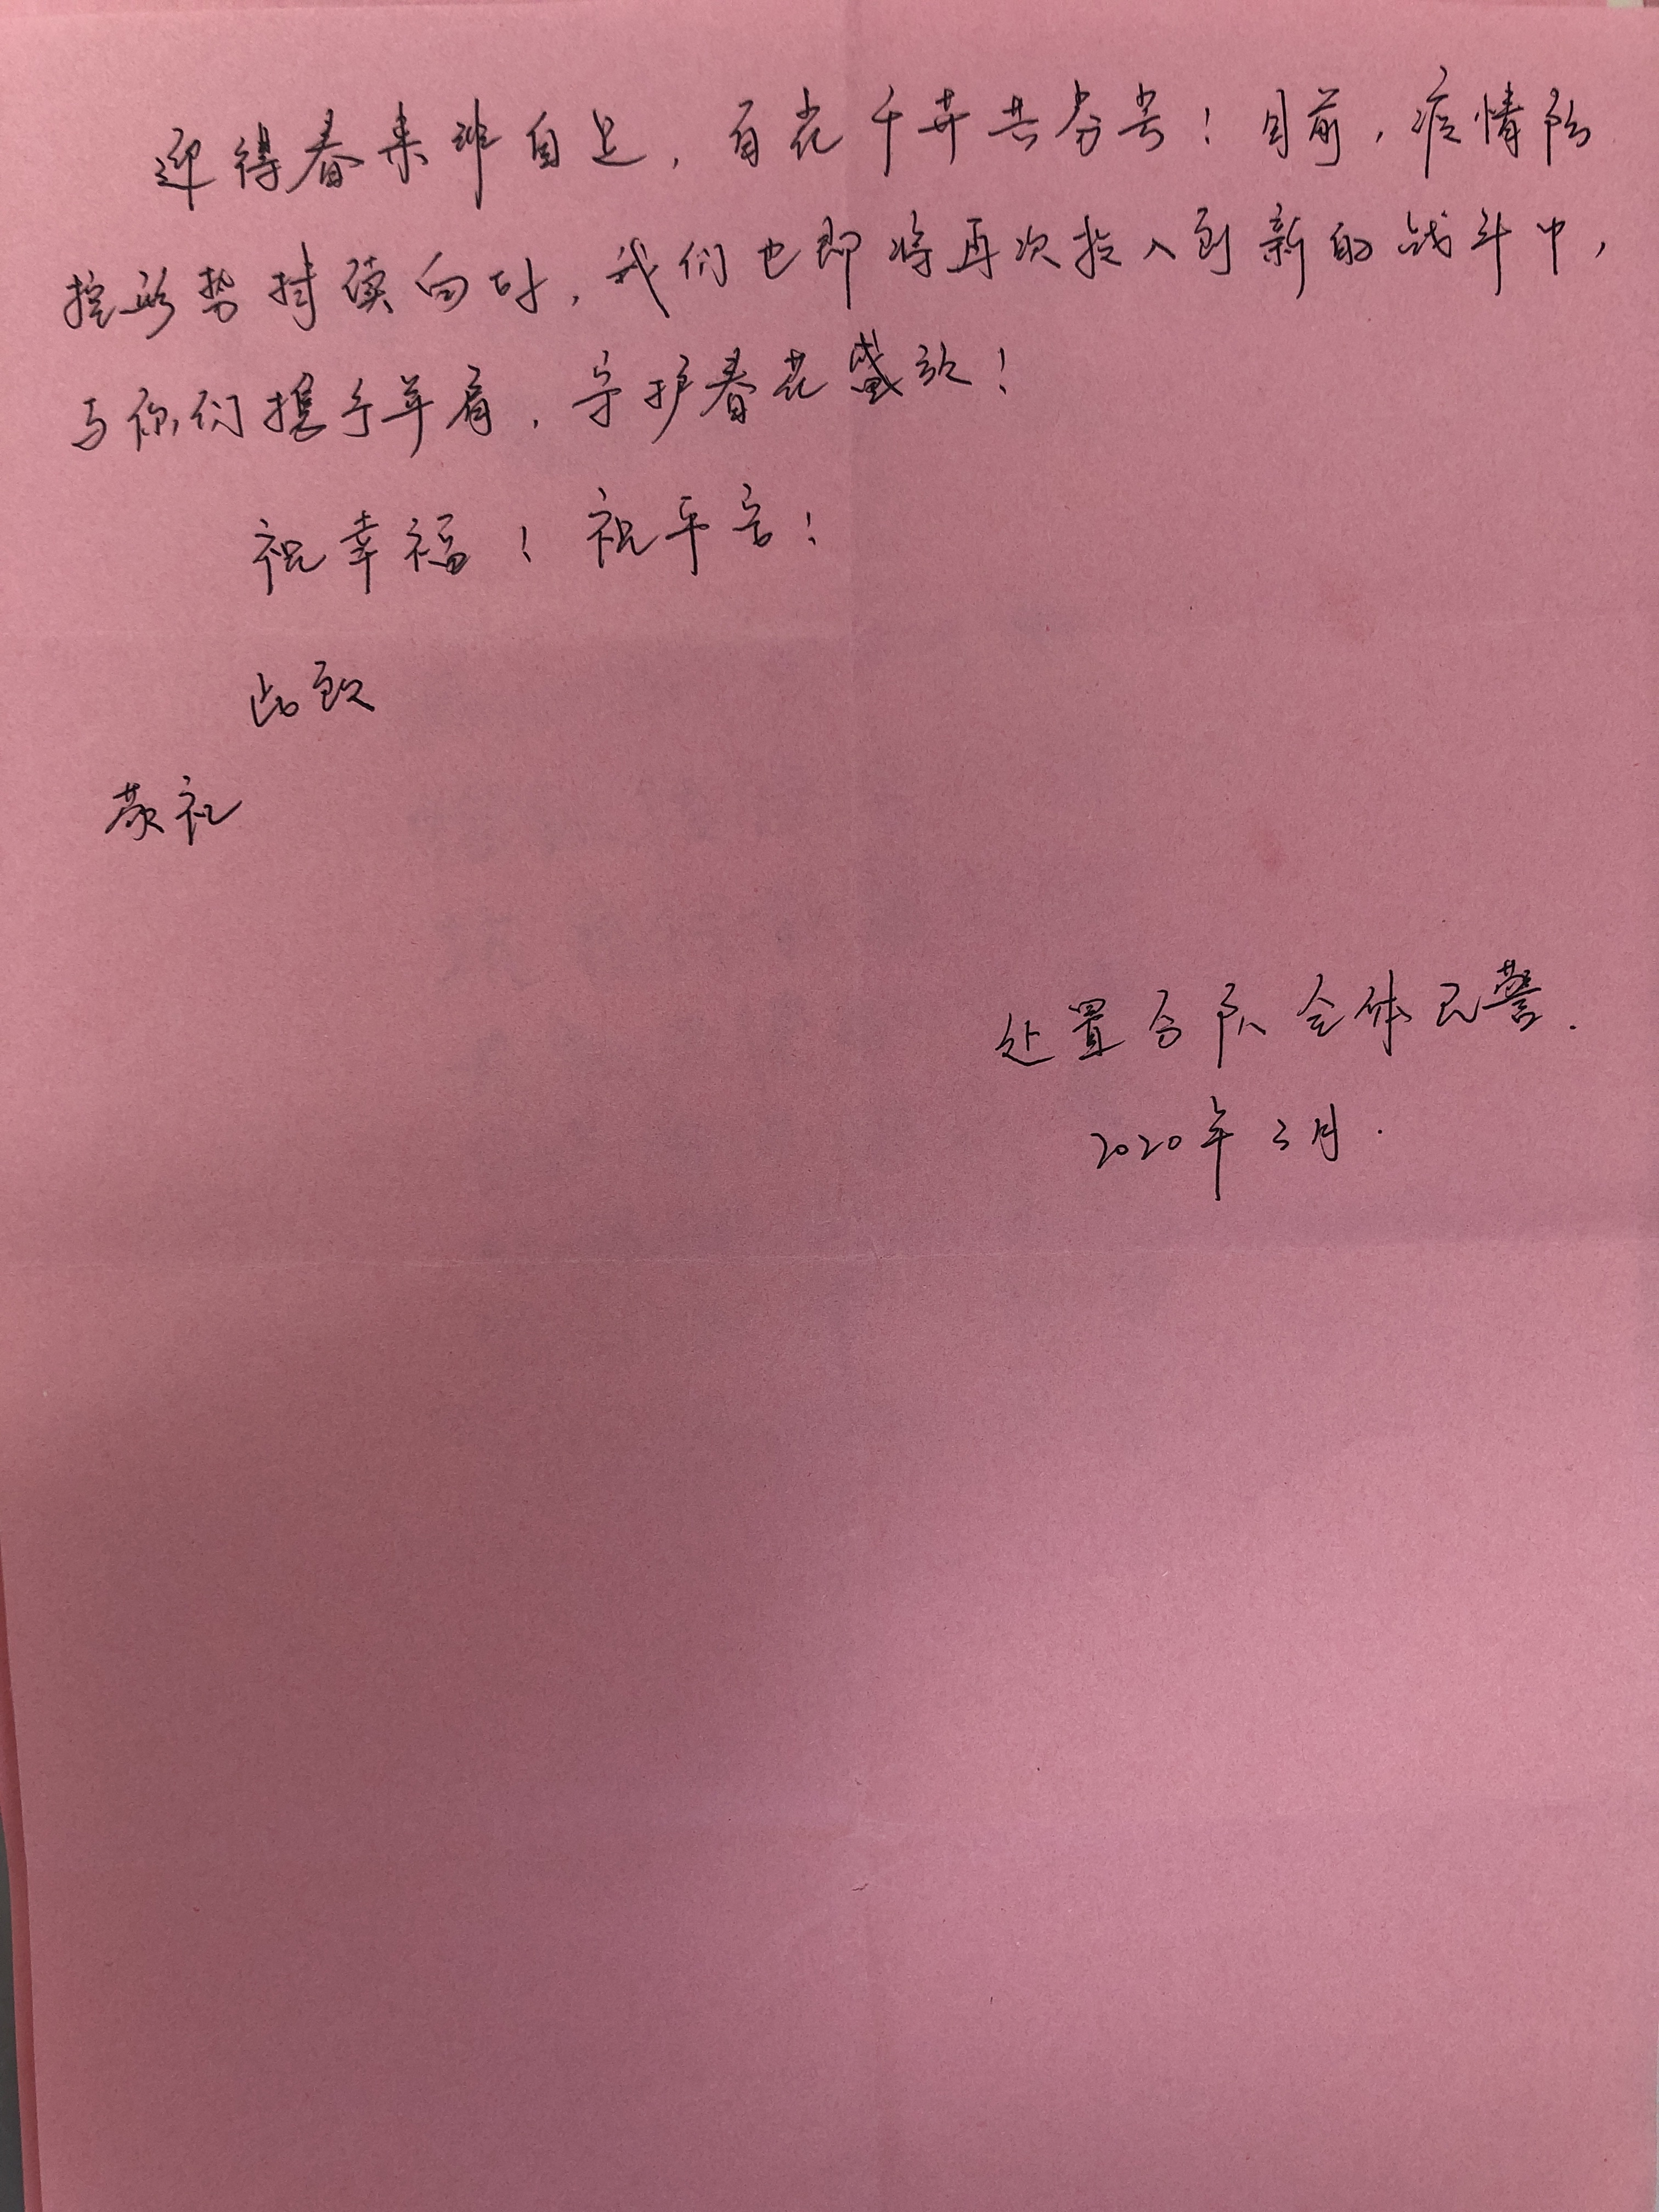 迎得春来非自足，百花千卉共芬芳！目前，疫情防
控形势持续向好，我们也即将再次投入到新的战斗中，
与你们携手并肩，守护春花盛放！
祝幸福！祝平安！
此致
敬礼
处置分队全体民警.
2020年3月.